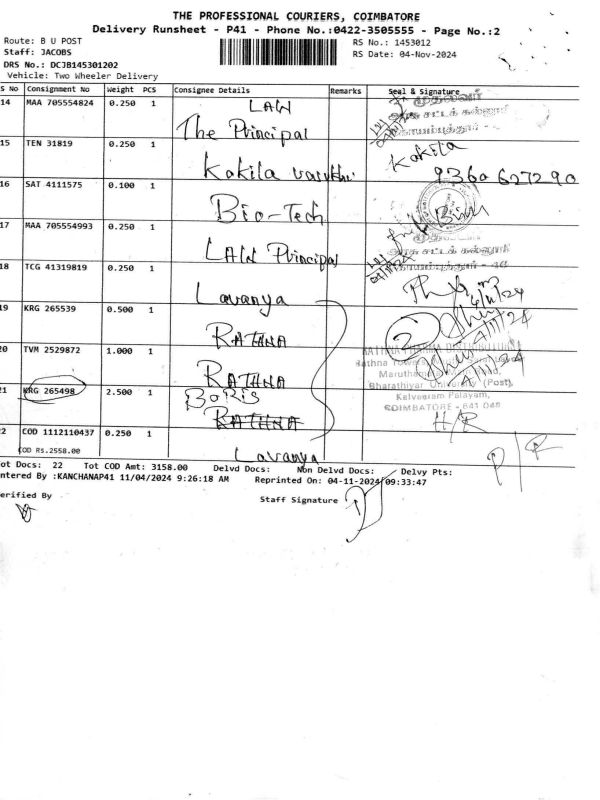 THE PROFESSIONAL COURIERS, COIMBATORE
Delivery Runsheet - P41 - Phone No.:0422-3505555 - Page No.:2
Route: B U POST
RS No.: 1453012
Staff: JACOBS
RS Date: 04-Nov-2024
DRS No.: DCJB145301202
Vehicle: Two Wheeler Delivery
S No Consignment No Weight PCS Consignee Details Remarks Seal & Signature
14 MAA 705554824 0.250 1 LAW
The Principal
முதல்வர்
அரசு சட்டக் கல்லூரி
15 TEN 31819 0.250 1 Kokila
Kokila
9360627290
16 SAT 4111575 0.100 1 Bio-Tech
17 MAA 705554993 0.250 1 LAW Principal
முதல்வர்
அரசு சட்டக் கல்லூரி
18 TCG 41319819 0.250 1 Lavanya
4/11/24
19 KRG 265539 0.500 1 RATHNA
4/11/24
20 TVM 2529872 1.000 1 RATHNA
4/11/24
Bharathiyar University (Post),
Kalveeram Palayam,
COIMBATORE - 641 046
21 KRG 265498 2.500 1 BORIS
RATHNA
22 COD 1112110437 0.250 1 Lavanya
COD RS.2558.00
ot Docs: 22 Tot COD Amt: 3158.00 Delvd Docs: Non Delvd Docs: Delvy Pts:
ntered By :KANCHANAP41 11/04/2024 9:26:18 AM Reprinted On: 04-11-2024 09:33:47
erified By
Staff Signature